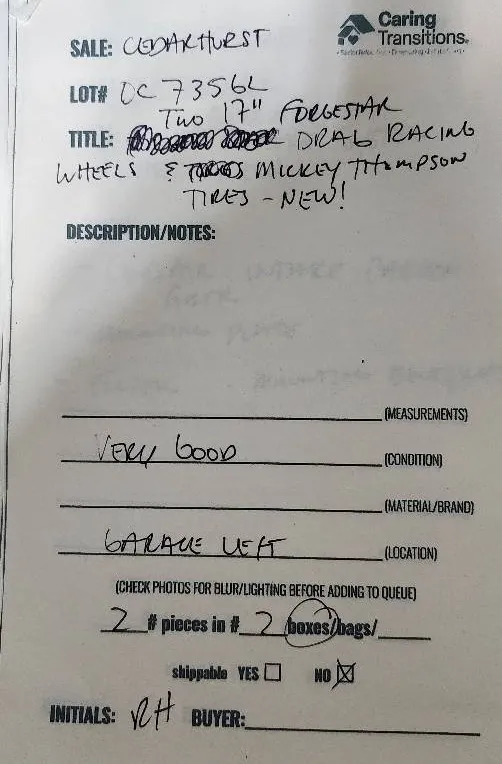 Caring
Transitions.
SALE: CEDARHURST
LOT# OC 7356L
TWO 17" FORGESTAR
TITLE: DRAG RACING
WHEELS & MICKEY THOMPSON
TIRES - NEW!
DESCRIPTION/NOTES:
(MEASUREMENTS)
VERY GOOD (CONDITION)
(MATERIAL/BRAND)
GARAGE LEFT (LOCATION)
(CHECK PHOTOS FOR BLUR/LIGHTING BEFORE ADDING TO QUEUE)
2 # pieces in # 2 boxes/bags/
shippable YES ☐ NO ☒
INITIALS: RH BUYER: